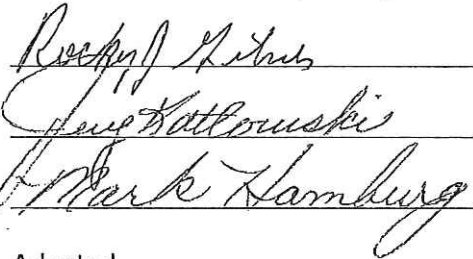 Rocky J Gibbs
Gene Kotlowski
Mark Hamburg
Adopted